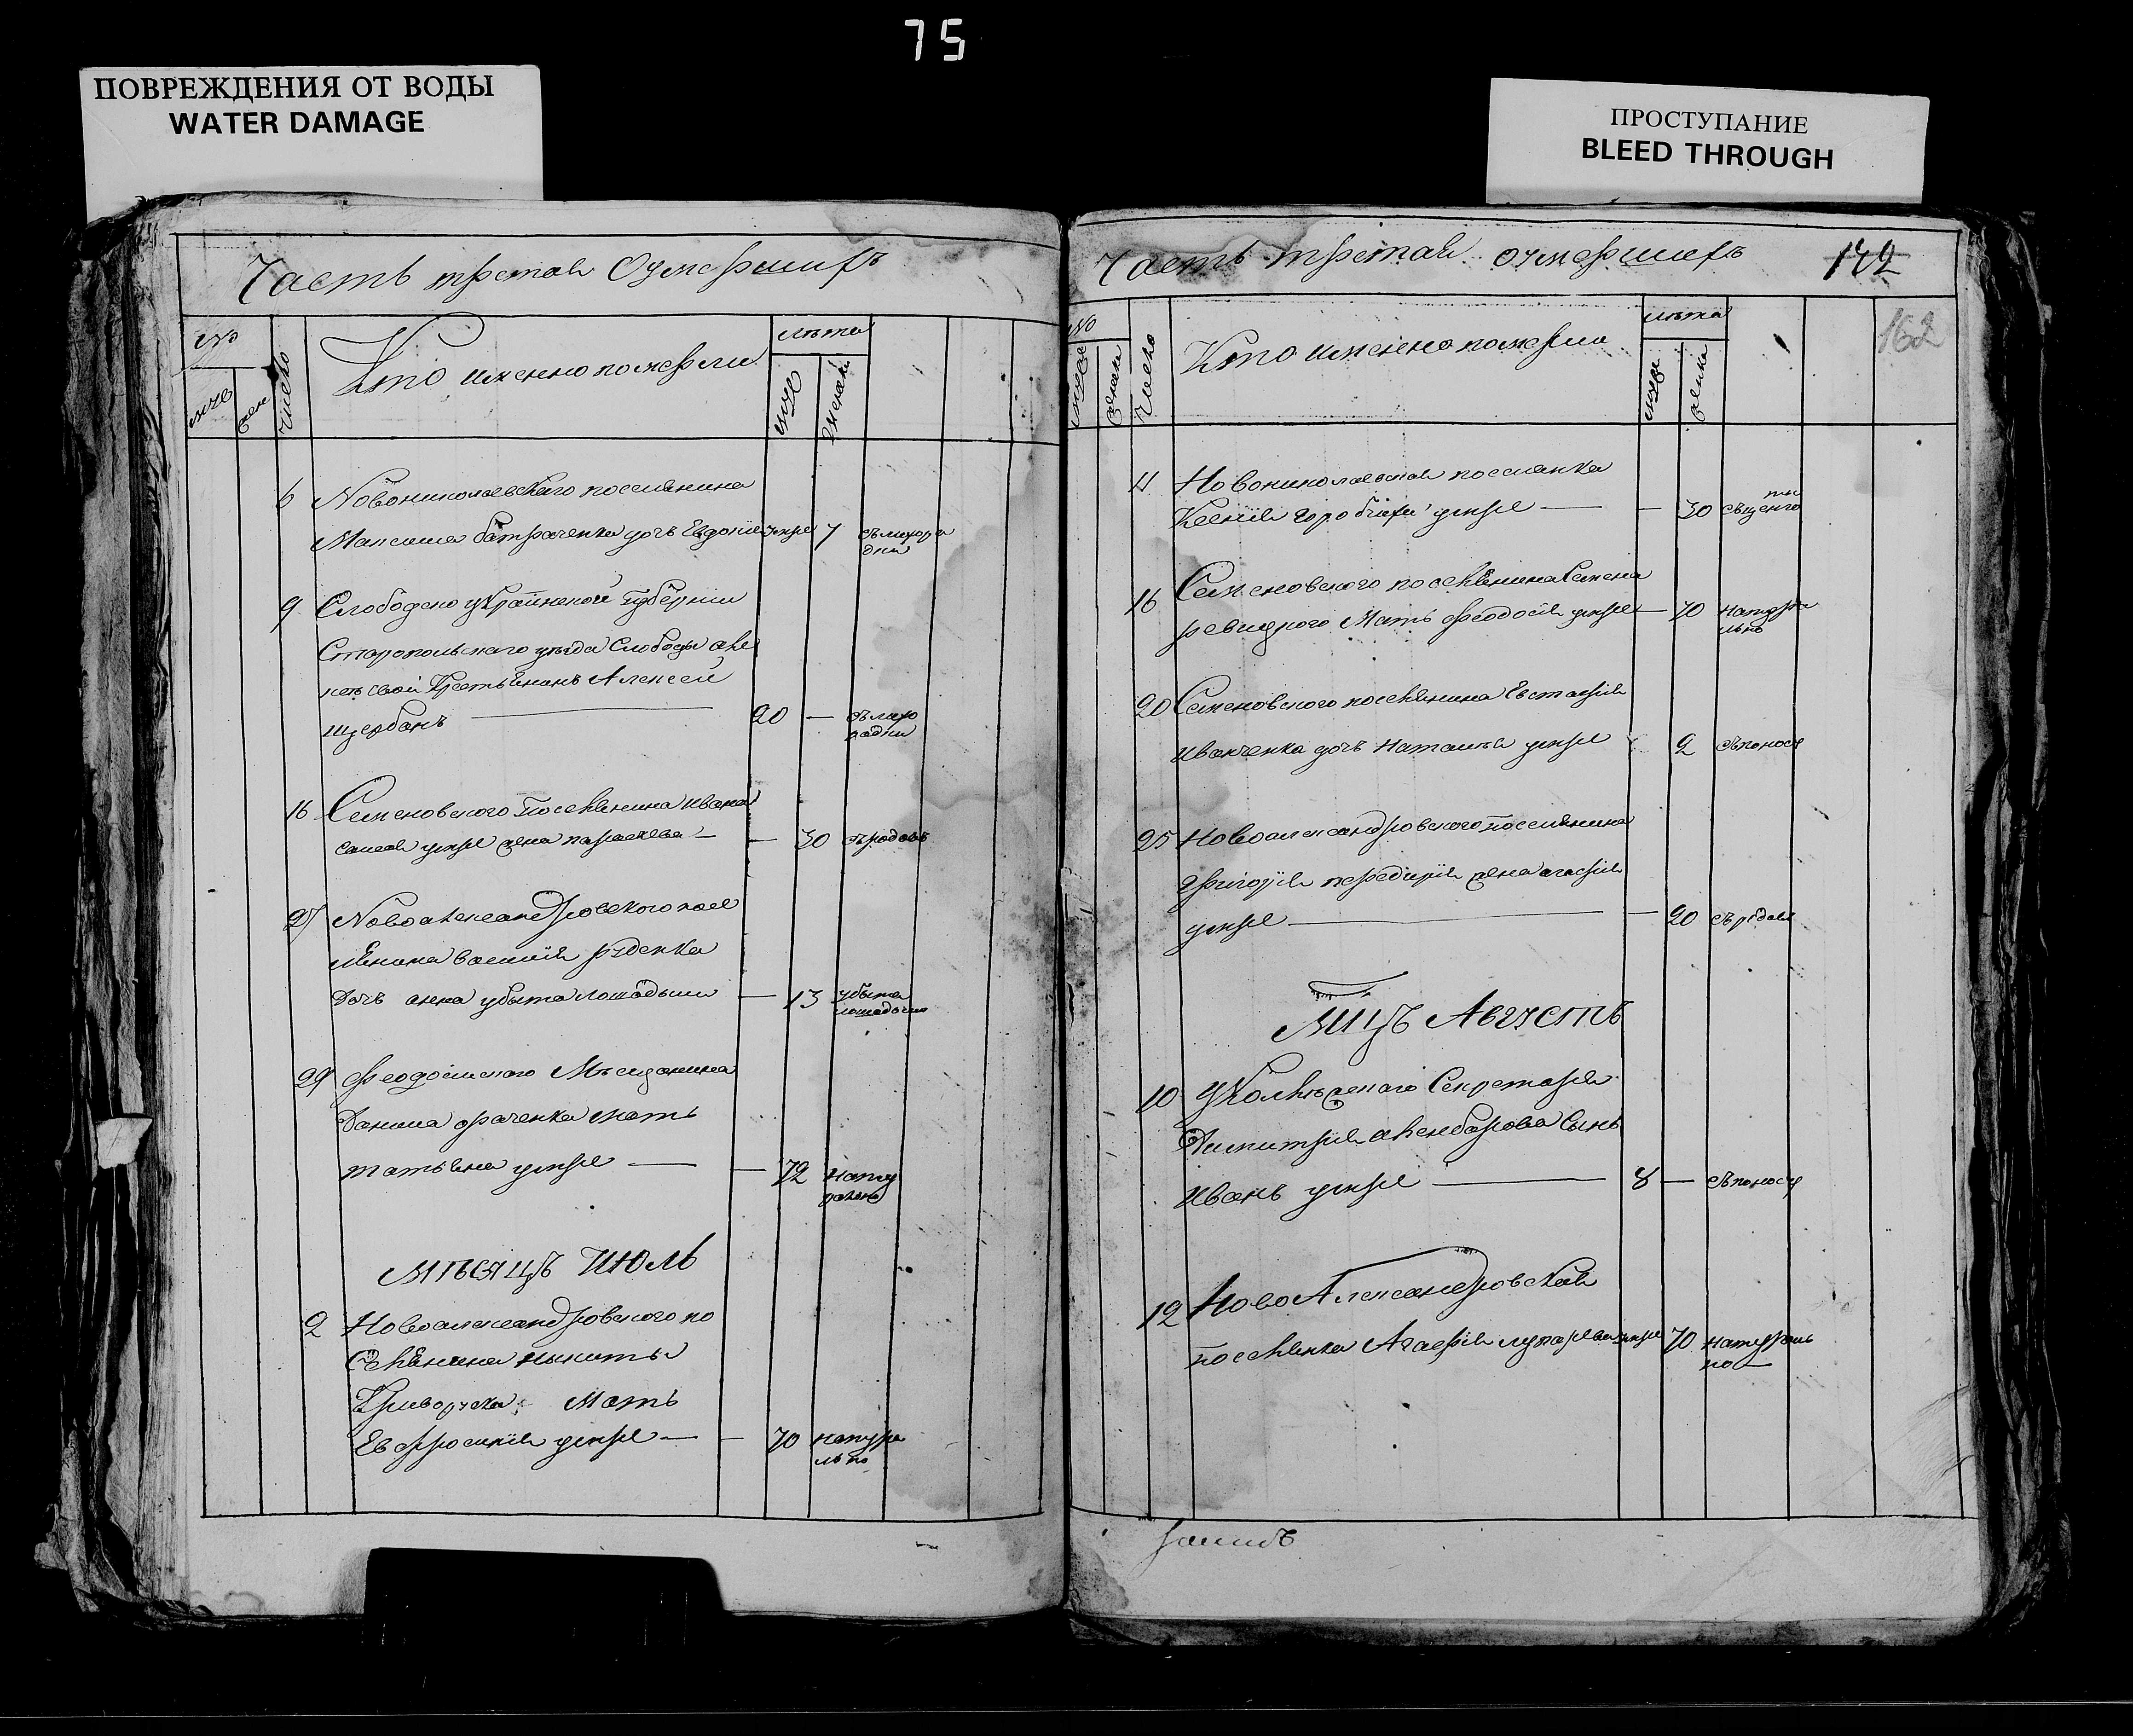 75
ПОВРЕЖДЕНИЯ ОТ ВОДЫ
WATER DAMAGE
ПРОСТУПАНИЕ
BLEED THROUGH
Часть третая Оумершихъ
№
муже
жен
Число
Кто именно померли
лѣта
муже
женски
6 Новониколаевскаго поселянина
Максима батраченка дочь Евдокия умре 7 съ лихора
дки
9 Слободскоукраинской губернии
Старопольскаго уѣзда Слободы
Крестьянинъ Алексей
щербанъ — 20 — съ лихо
радки
16 Семеновского Поселянина ивана
умре жена параскева — — 30 съ родовъ
27 Новоалександровского посе
лянина василия руденка
Дочь анна убыта лошадьми — 13 убыта
лошадьми
29 феодосийского Мѣсщанина
Данила мать
татьяна умре — — 72 нату
рально
Мѣсяцъ Июль
2 Новоалександровского по
селянина никиты
Мать
Евфросиния умре — — 70 натура
льно
Часть третая оумершихъ 142
162
№
муже
женски
Число
Кто именно померли
лѣта
муже
женски
11 Новониколаевская поселянка
Ксения умре — — 30
16 Семеновского поселянина Семена
Мать феодосия умре — 70 натура
льно
20 Семеновского поселянина Евстафия
иванченка дочь наталья умре 2 съ поносу
25 Новоалександровского поселянина
григория жена агафия
умре — — 20 съ родовъ
Мцъ Августъ
10 у Колѣжскаго Секретаря
Димитрия Сынъ
иванъ умре — 8 — съ поносу
12 Ново Александровская
поселянка Агафия умре 70 натураль
но —